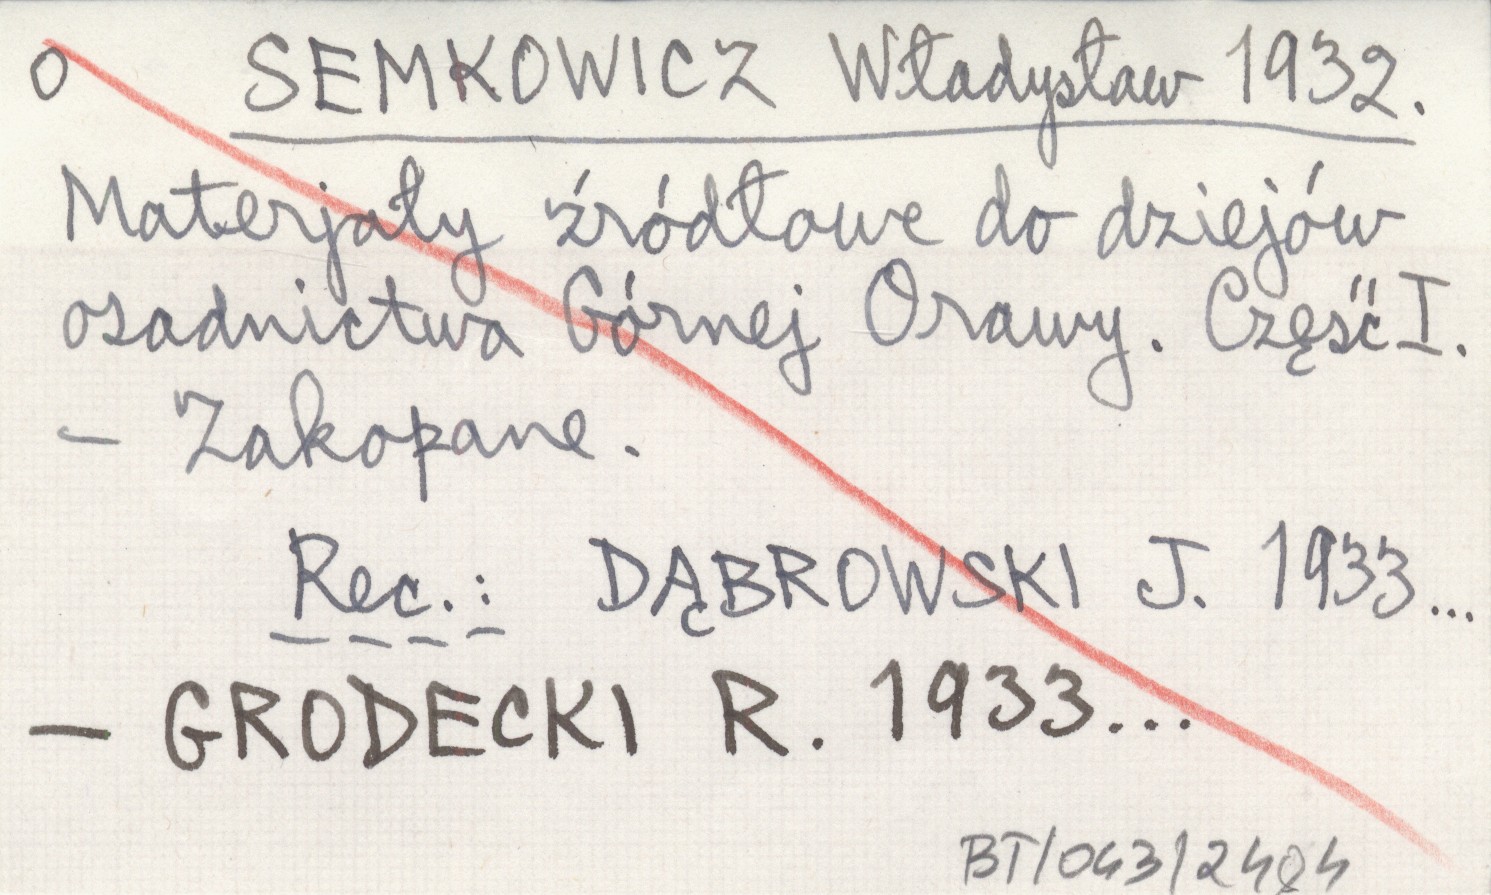 o SEMKOWICZ Władysław 1932.
Materjały źródłowe do dziejów
osadnictwa Górnej Orawy. Część I.
– Zakopane.
Rec.: DĄBROWSKI J. 1933...
– GRODECKI R. 1933...
BT/043/2404